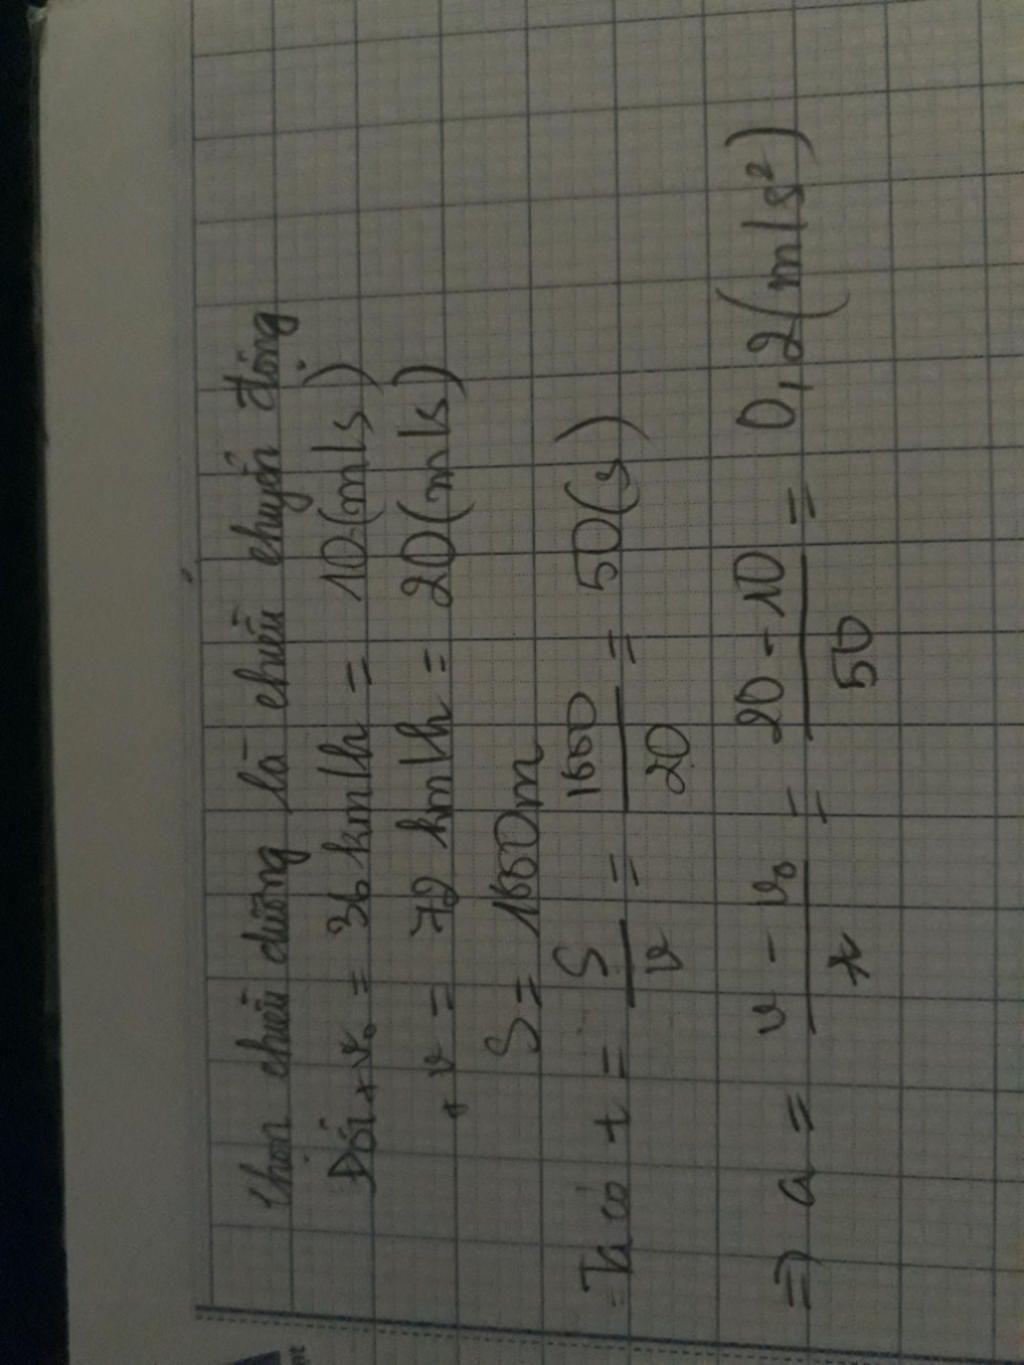 Chọn chiều dương là chiều chuyển động
Đổi + v₀ = 36 km/h = 10 (m/s)
+ v = 72 km/h = 20 (m/s)
S = 1000m
Ta có t = S/v = 1000/20 = 50 (s)
=> a = (v - v₀)/t = (20 - 10)/50 = 0,2 (m/s²)